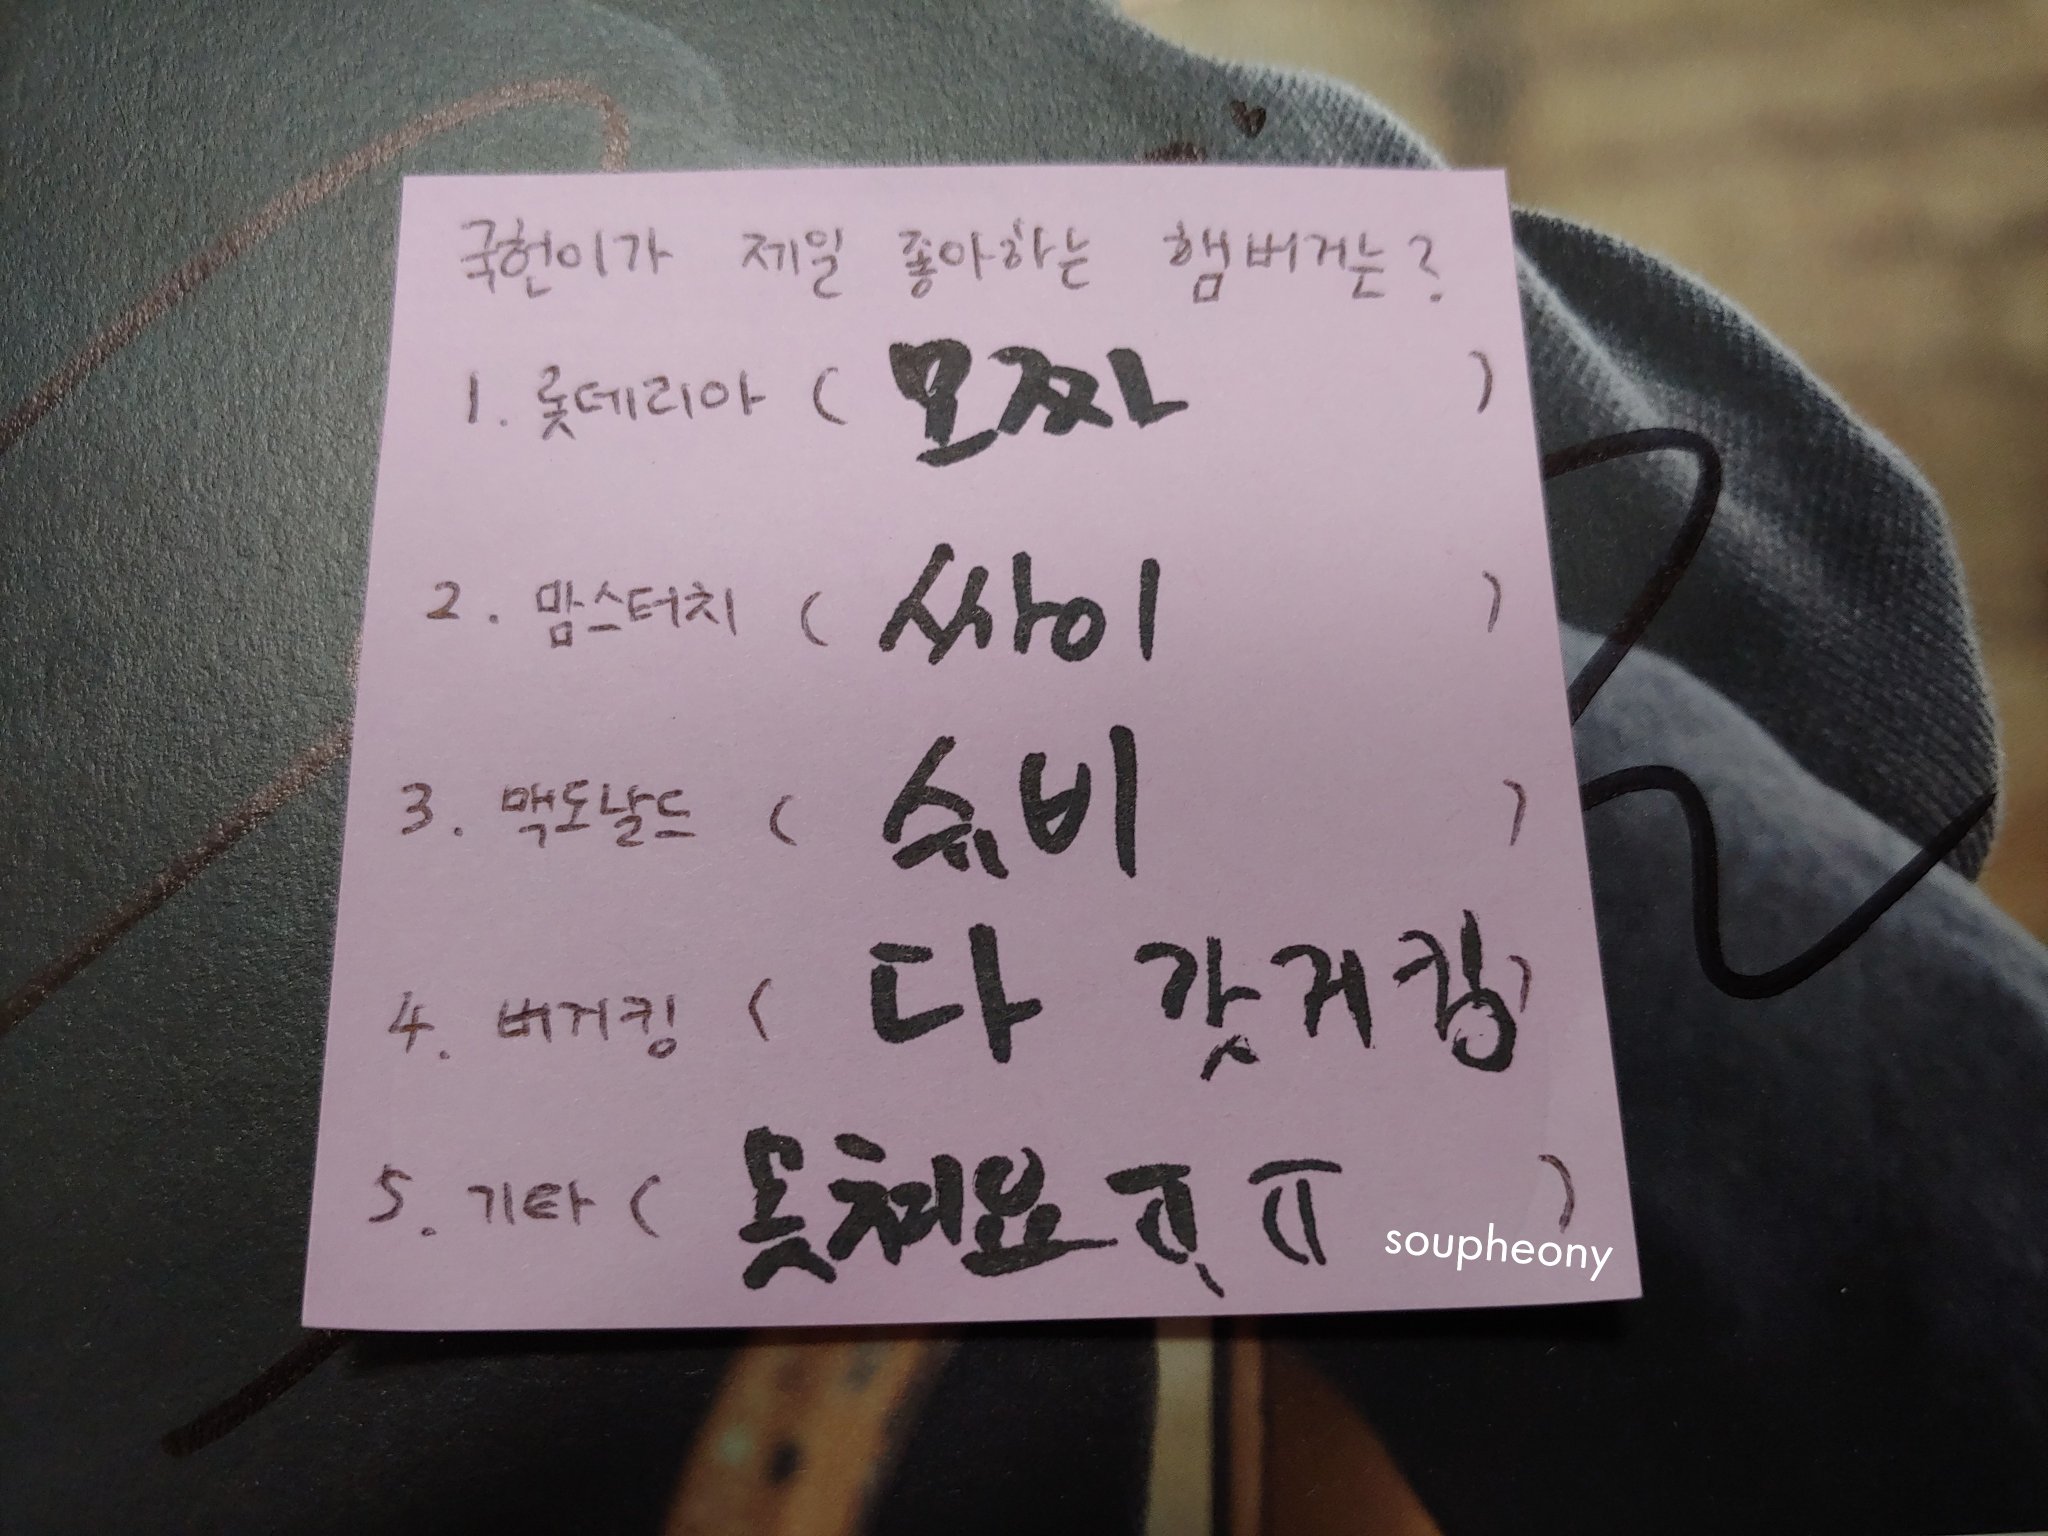 국헌이가 제일 좋아하는 햄버거는?
1. 롯데리아 ( 모짜 )
2. 맘스터치 ( 싸이 )
3. 맥도날드 ( 슈비 )
4. 버거킹 ( 다 갖거킹 )
5. 기타 ( 못쳐요ㅠㅠ )
soupheony